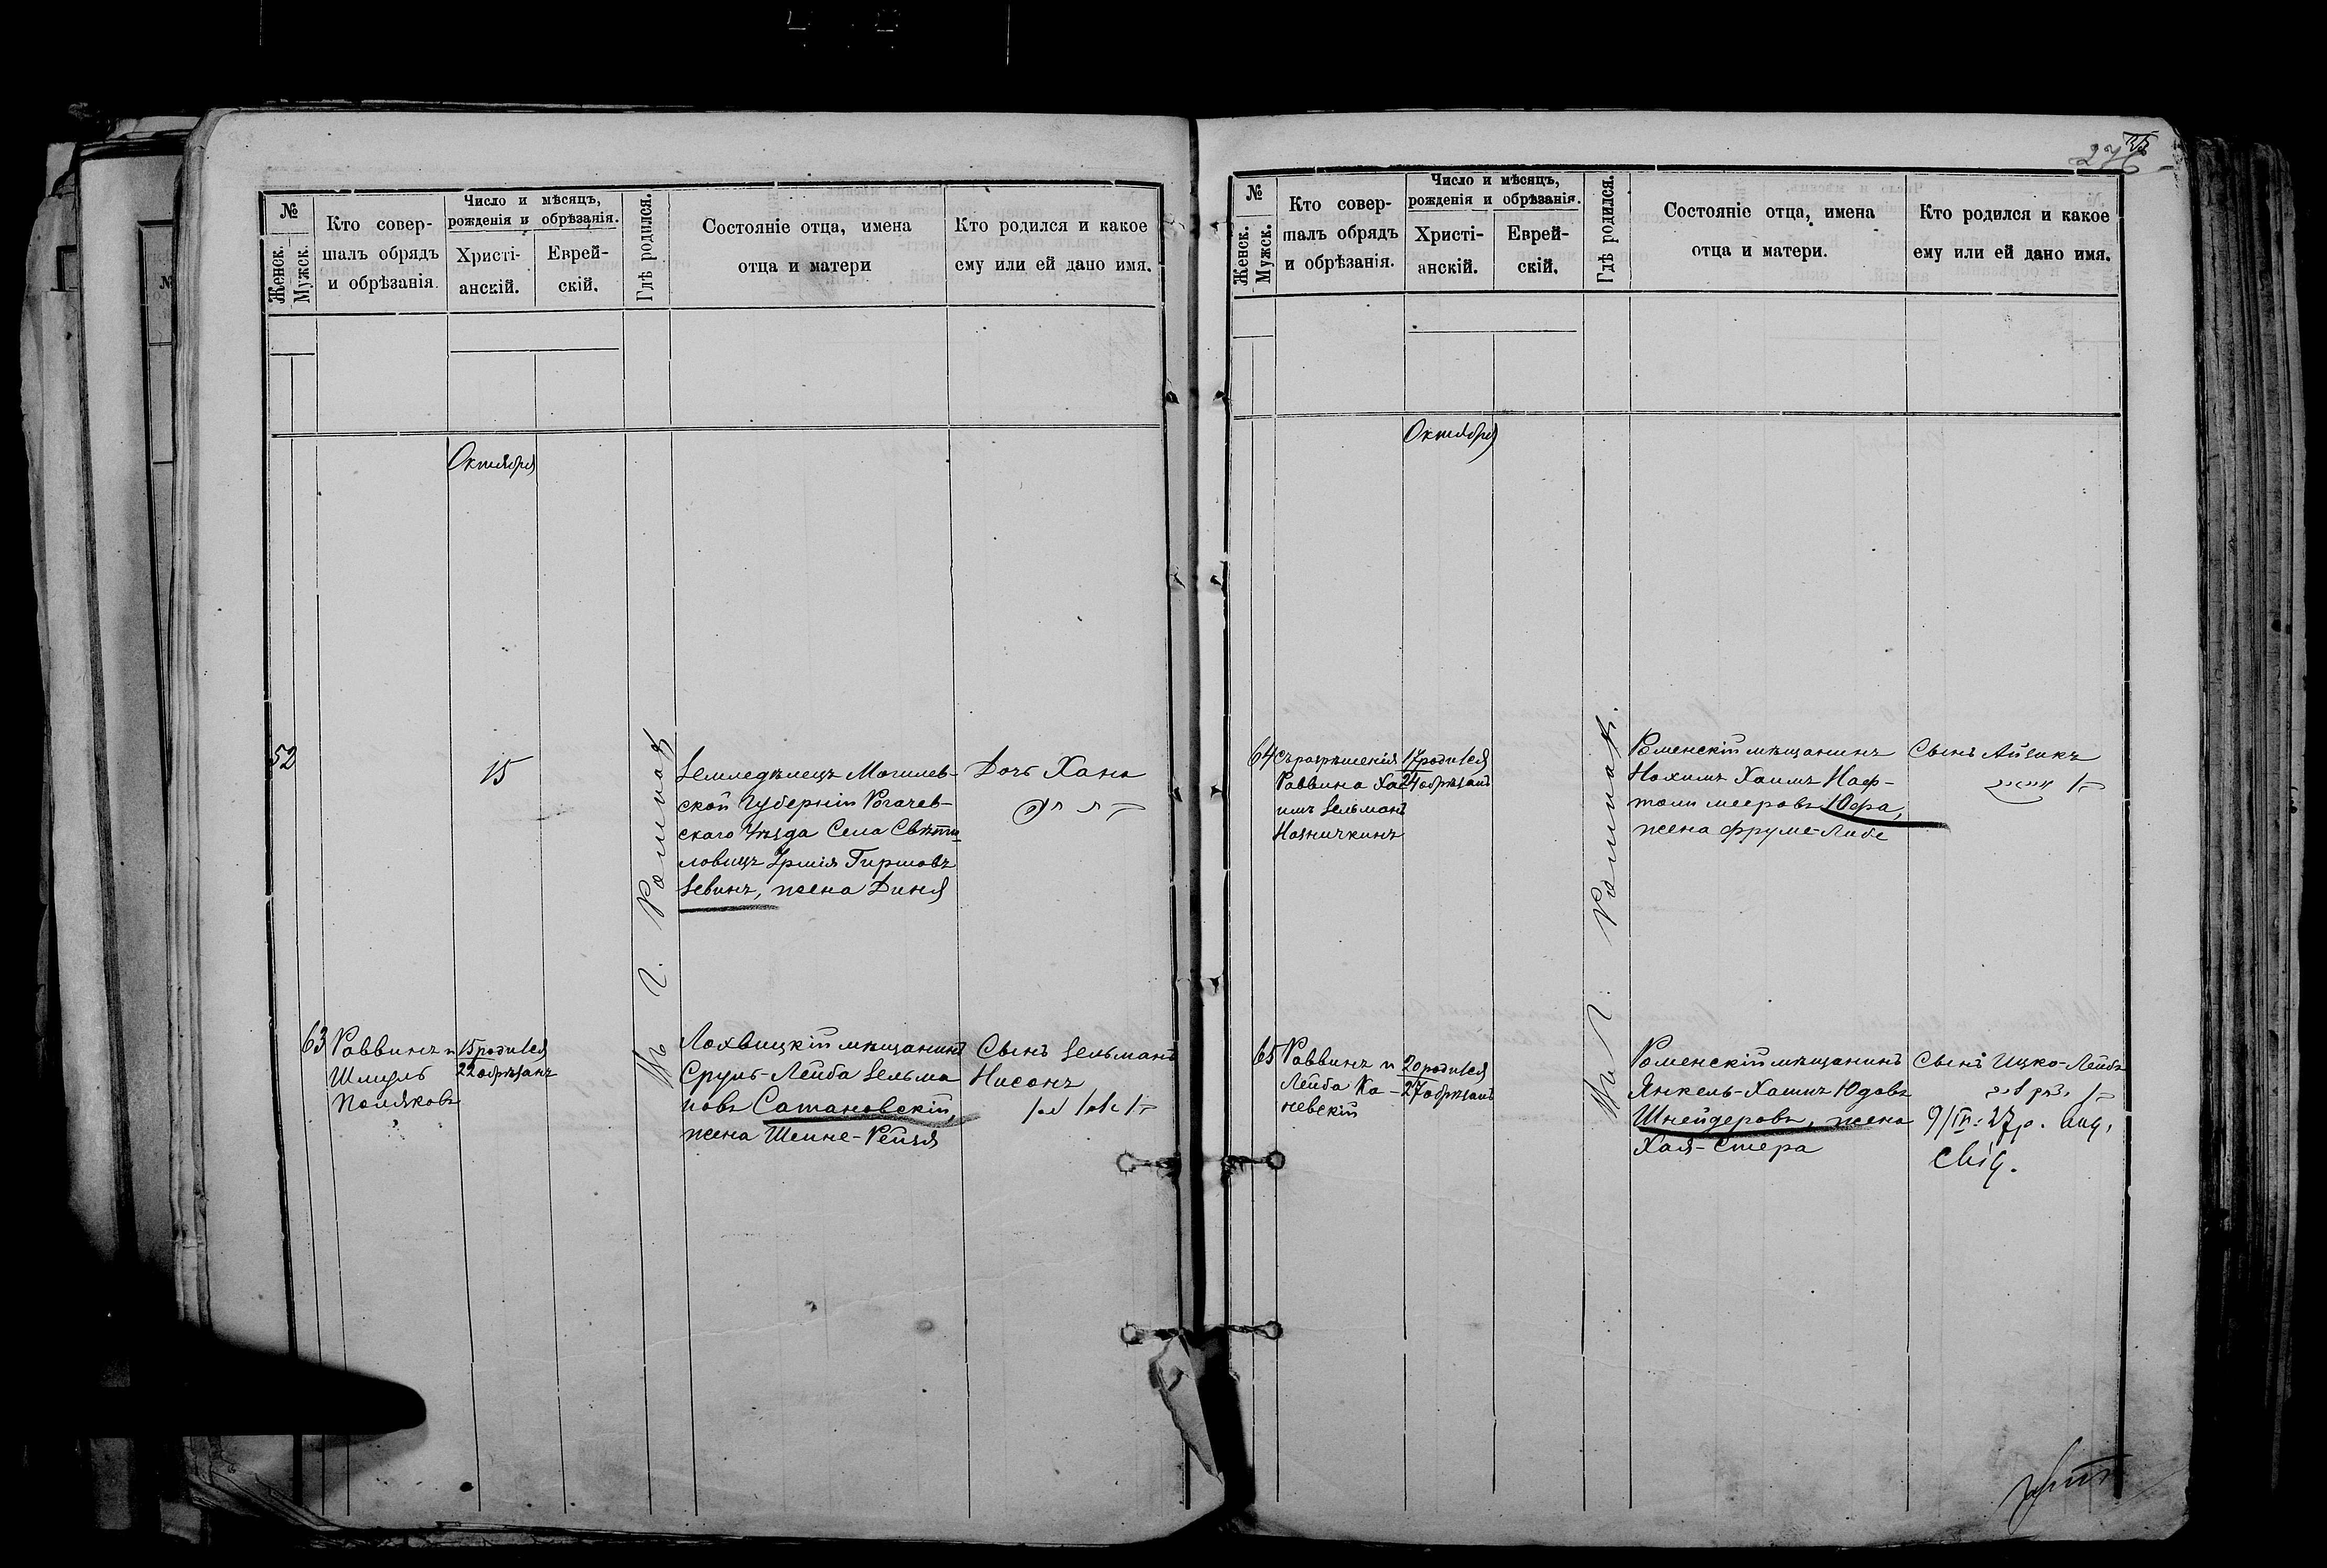 №
Женск.
Мужск.
Кто совер-
шалъ обрядъ
и обрѣзанія.
Число и мѣсяцъ,
рожденія и обрѣзанія.
Христі-
анскій.
Еврей-
скій.
Гдѣ родился.
Состояніе отца, имена
отца и матери
Кто родился и какое
ему или ей дано имя.
Октября
52
15
Земледѣлецъ Могилев-
ской Губерніи Рогачев-
скаго Уѣзда Села Свѣти
ловицъ Ірмія Гиршовъ
Зевинъ, жена Диня
Дочь Хана
Въ г. Ромнахъ
63
Раввинъ и
Шмуль
Поляковъ
15 родился
22 обрѣзанъ
Лохвицкій мѣщанинъ
Сруль-Лейба Зельма
новъ Сатановскій,
жена Шейне-Рейзя
Сынъ Зельманъ
Нисонъ
276
№
Женск.
Мужск.
Кто совер-
шалъ обрядъ
и обрѣзанія.
Число и мѣсяцъ,
рожденія и обрѣзанія.
Христі-
анскій.
Еврей-
скій.
Гдѣ родился.
Состояніе отца, имена
отца и матери.
Кто родился и какое
ему или ей дано имя.
Октября
64
Съ разрѣшенія
Раввина Ха
имъ Зельманъ
17 родился
24 обрѣзанъ
Роменскій мѣщанинъ
Нохимъ Хаимъ Наф-
толи мееровъ Юфа,
жена Фруме-Либе
Сынъ Айзикъ
Въ г. Ромнахъ.
65
Раввинъ и
Лейба Ка-
невскій
20 родился
27 обрѣзанъ
Роменскій мѣщанинъ
Янкель-Хаимъ Юдовъ
Шнейдеровъ, жена
Хая-Стера
Сынъ Ицко-Лейбъ
בן יצחק לייב
9/IV. 27 р. вид.
свід.